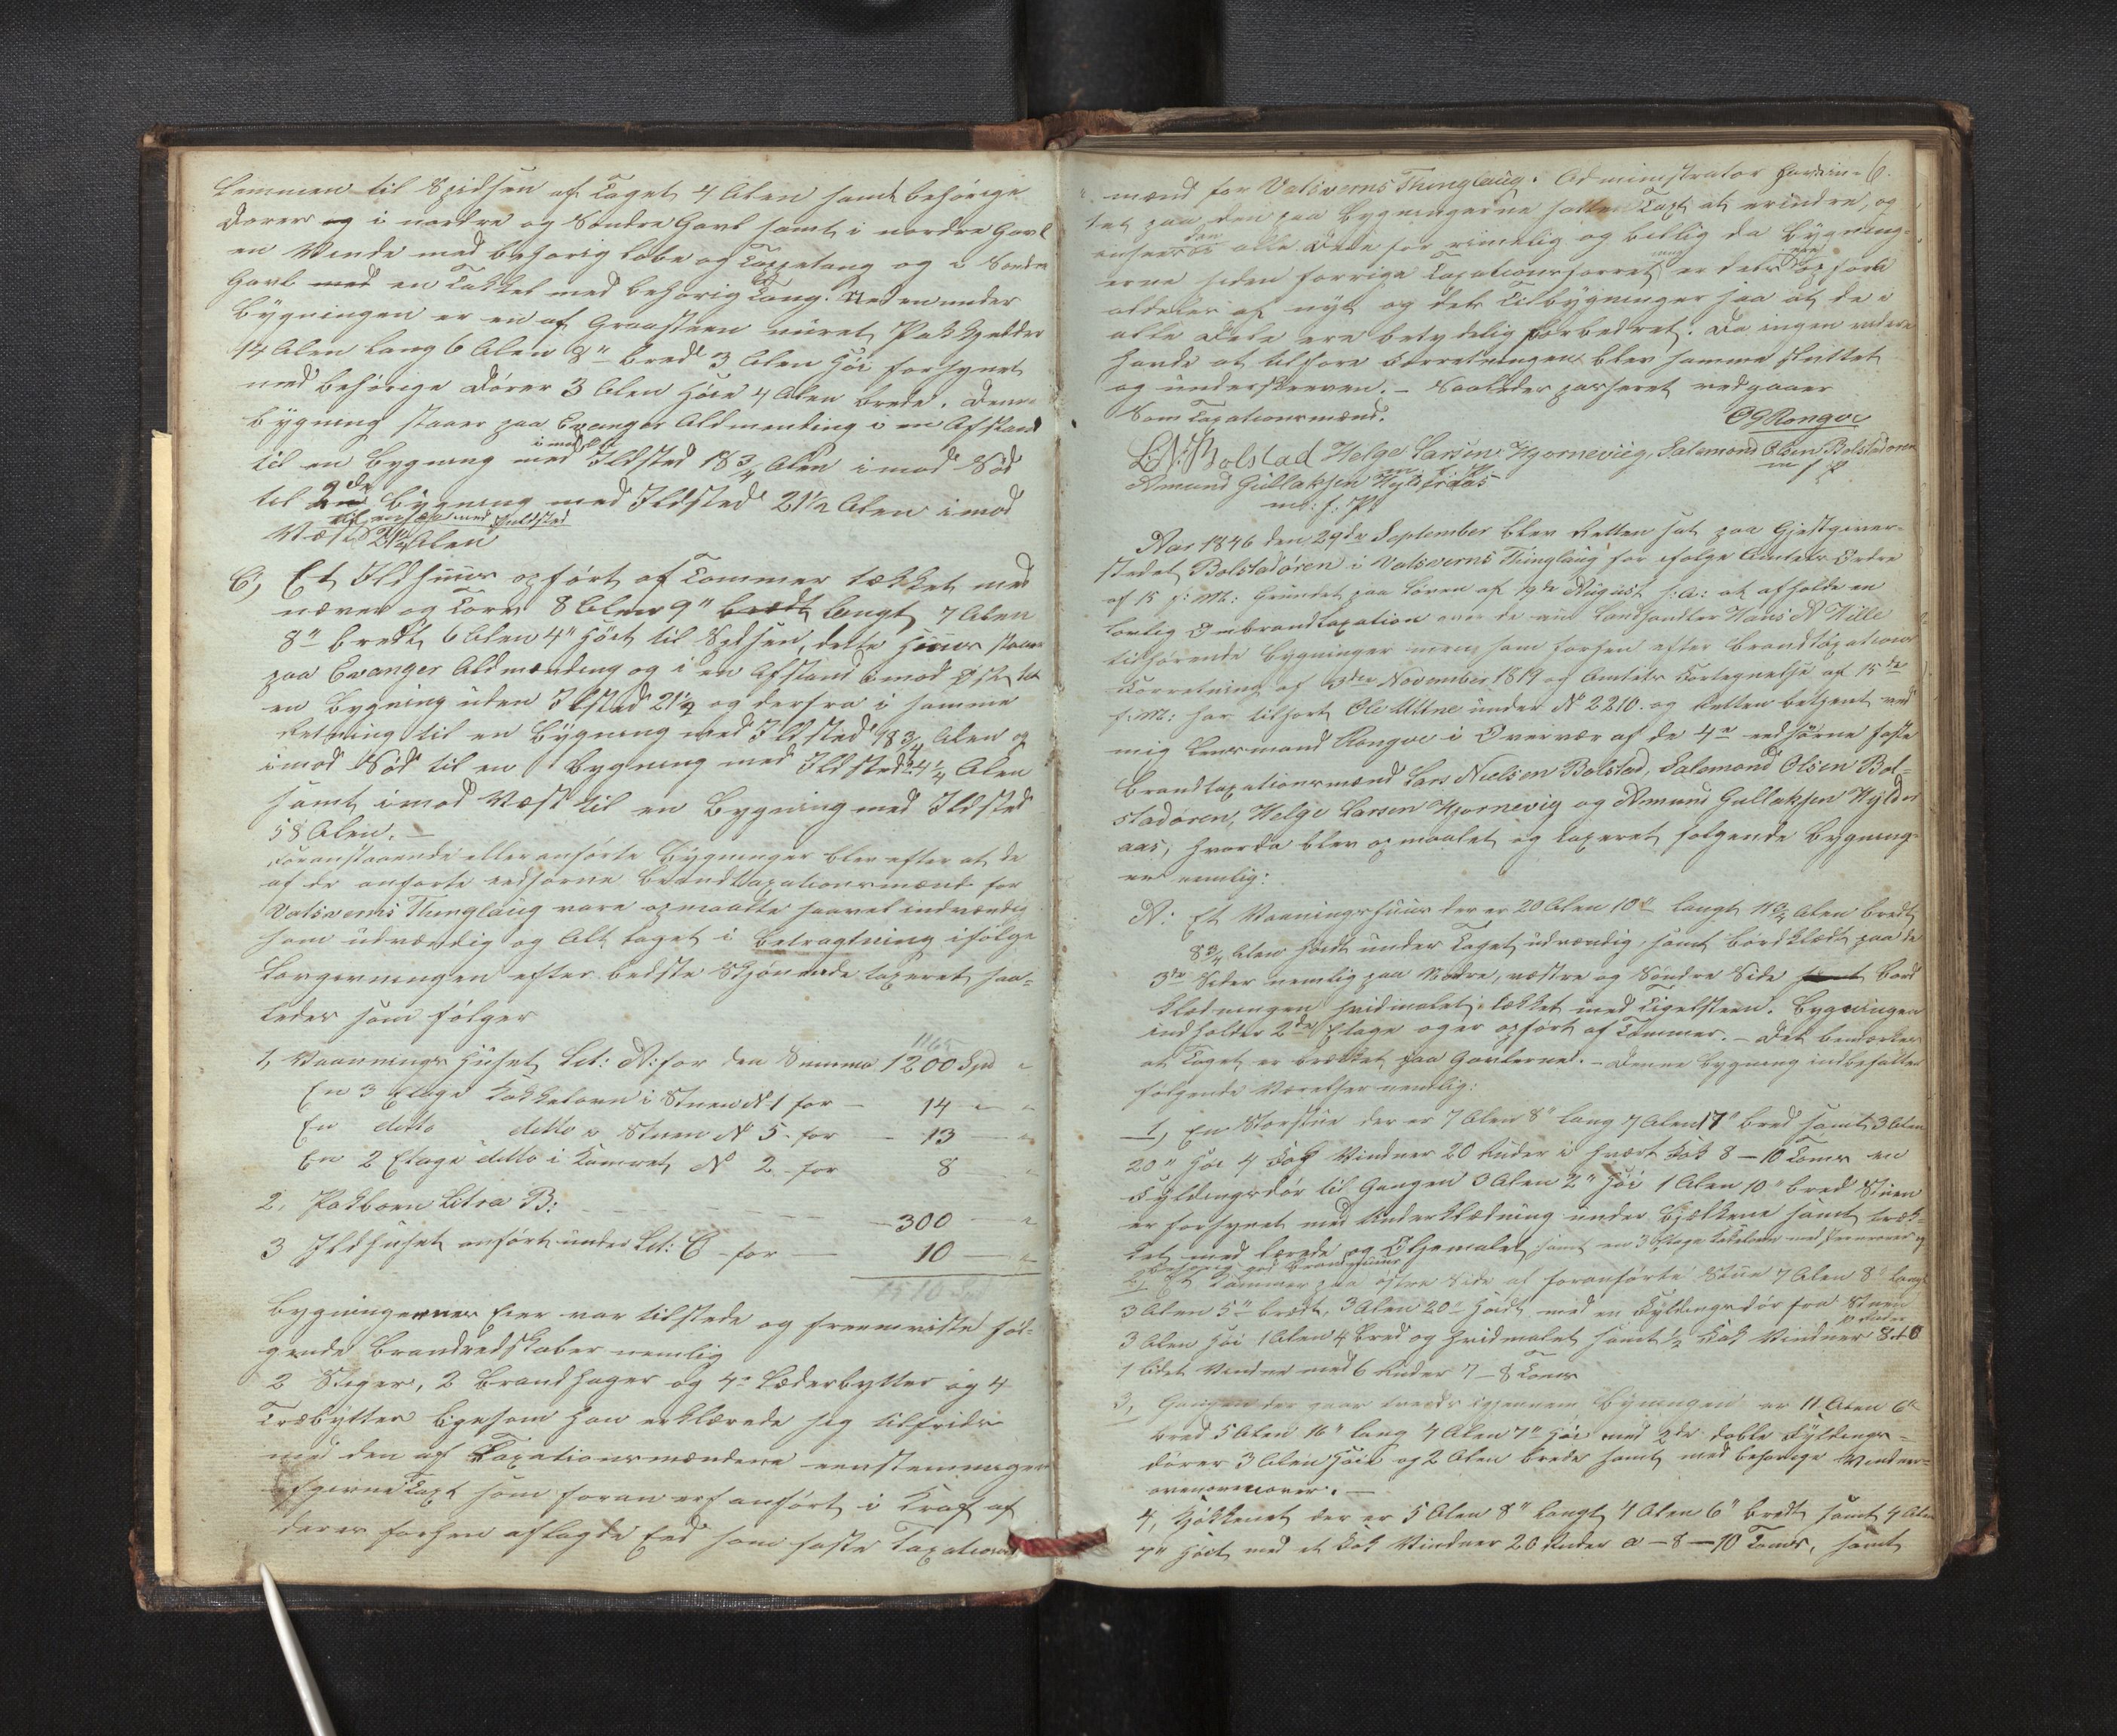 Lemmen til Spidsen af Taget 4 Alen samt behørige
Dører og i nordre og Søndre Gavl samt i nordre Gavl
en Vinde med behørig Lobe og Toug og i Søndre
Gavl med en Takkel med behørig Toug. Nedenunder
Bygningen er en af Graasteen muret Pakkjelder
14 Alen lang 6 Alen 8" bred 3 Alen høi forsynet
med behørige Dører 3 Alen høie 4 Alen brede. Denne
Bygning staaer paa Evanger Aldmending i en Afstand
til en Bygning med Ildsted 18 3/4 Alen imod Sød
til 2de Bygning med Ildsted 21 1/2 Alen imod
Vest 21 1/4 Alen
C, Et Ildhuus opført af Tommer tækket med
næver og Torv 8 Alen 9" bredt langt 7 Alen
8" bredt, 6 Alen 4" høit til Spidsen, dette Huus staaer
paa Evanger Aldmænding og i en Afstand imod Øst til
en Bygning uden Ildsted 21 1/2 og derfra i samme
Retning til en Bygning med Ildsted 18 3/4 Alen og
imod Sød til en Bygning med Ildsted 24 1/4 Alen
samt imod Vest til en Bygning med Ildsted
58 Alen. —
Foranstaaende eller anførte Bygninger blev efter at de
af de anførte eedsorne Brandtaxationsmænd for
Vatsverns Thinglaug vare opmaalte saavel indvændig
som udvændig og Alt taget i betragtning ifølge
Lovgivningen efter bedste Skjønnende taxeret saa=
ledes som følger
1165
1, Vaaningshuset Lit: A: for den Summa 1200 Spd "
En 3 Etage Kakkelovn i Stuen N 1 for — 14 — "
En ditto ditto i Stuen N 5 for — 13 — "
En 2 Etage ditto i Kamret N 2 for 8 "
2, Pakboen Litra B: — 300 — "
3 Ildhuset anført under Lit: C for — 10 — "
1510 Spd
Bygningernes Eier var tilstede og fremviste føl=
gende Brandredskaber nemlig
2 Stiger, 2 Brandhager og 4 Læderbytter og 4
Træbytter ligesom han erklærede sig tilfreds
med den af Taxationsmændene eenstemmigen
afgivne Taxt som foran er anført i Kraft af
deres forhen aflagde Eed som faste Taxations
6.
mænd for Vatsverns Thinglaug. Administrator
tet paa den paa Bygningerne satte Taxt at erindre, og
anseer den i alle Dele for rimelig og billig da Bygning=
erne siden forrige Taxationsforretning er dels opført
aldeles af nyt og dels Tilbygninger saa at de i
alle Dele ere betydelig forbedret. Da ingen videre
havde at tilføre Forretningen blev samme sluttet
og underskreven. — Saaledes passeret vedgaaer
Som Taxationsmænd. OGRongve
L. N. Bolstad Helge Larsen Hjørnevig, Salemond Olsen Bolstadøren
m f P
Amund Gullaksen Hyldreaas
m: f: P
Aar 1846 den 29de September blev Retten sat paa Gjestgiver=
stedet Bolstadøren i Vatsverns Thinglaug for ifølge Amtets Ordre
af 15 f: M: grundet paa Loven af 19de August f: A: at afholde en
lovlig Ombrandtaxation over de nu Landhandler Hans N Hille
tilhørende Bygninger men som forhen efter Brandtaxations
Forretning af 3die November 1819 og Amtets Fortegnelse af 15de
f: M: har tilhørt Ole Uttne under N 2210. og Retten betjent ved
mig Lensmand Rongve i Overvær af de 4re eedsorne faste
Brandtaxationsmænd Lars Nielsen Bolstad, Salemond Olsen Bol=
stadøren, Helge Larsen Hjørnevig og Amund Gullaksen Hyldre
aas, hvorda blev opmaalet og taxeret følgende Bygning=
er nemlig:
A: Et Vaaningshuus der er 20 Alen 10" langt 11 3/4 Alen bredt
8 3/4 Alen høidt under Taget udvændig, samt bordklædt paa de
3de Sider nemlig paa Nordre, vestre og Søndre Side samt Bord
klædningen hvidmalet, tækket med Tigelsteen. Bygningen
indholder 2de Etage og er opført af Tømmer. — Det bemærkes
at Taget er brækket paa Gavlerne. — Denne Bygning indbefatter
følgende Værelser nemlig:
1, En Storstue der er 7 Alen 8" lang 7 Alen 17" bred samt 3 Alen
20" høi 4 Fag Vinduer 20 Ruder i hvert Fak 8 — 10 Toms en
Fyldingsdør til Gangen 3 Alen 2" høi 1 Alen 10" bred Stuen
er forsynet med Underklædning under Bjælkene samt træk=
ket med Lærede og Oljemalet samt en 3 Etage Kakelovn med
behørig god Brandmuur
2, Et Kammer paa østre Side af foranførte Stue 7 Alen 8" langt
3 Alen 5" bredt, 3 Alen 20" høidt med en Fyldingsdør fra Stuen
3 Alen høi 1 Alen 4 bred og hvidmalet samt 1/2 Fak Vinduer 8 à 10
1 lidet Vindue med 6 Ruder 7 — 8 Toms
3, Gangen der gaar tverds igjennem Bygningen er 11 Alen 6"
bred 5 Alen 16" lang 4 Alen 7" høi med 2de doble Fyldings=
dører 3 Alen høie og 2 Alen brede samt med behørige Vinduer
ovenover. —
4, Kjøkkenet der er 5 Alen 8" langt 4 Alen 6" bredt samt 4 Alen
7" høit med et Fak Vinduer 20 Ruder a — 8 — 10 Toms, samt